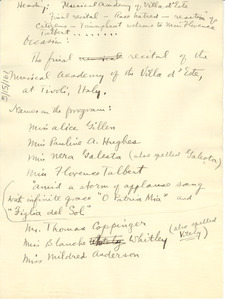 Heading: Musical Academy of Villa d'Este
Final recital - Race hatred - reaction of
Citizens - Triumphant welcome to Miss Florence
Talbert . . . . . . . .
Occasion:
The final recital of the
Musical Academy of the Villa d'Este,
at Tivoli, Italy.
Names on the program:
Miss Alice Gillen
Miss Pauline A. Hughes
Miss Nera Galesta (also spelled Galestor)
Miss Florence Talbert
amid a storm of applause sang
with infinite grace "O Patria Mia" and
"Figlia del Sol"
Mr. Thomas Coppinger
Miss Blanche Whitley (also spelled
Miss Mildred Anderson